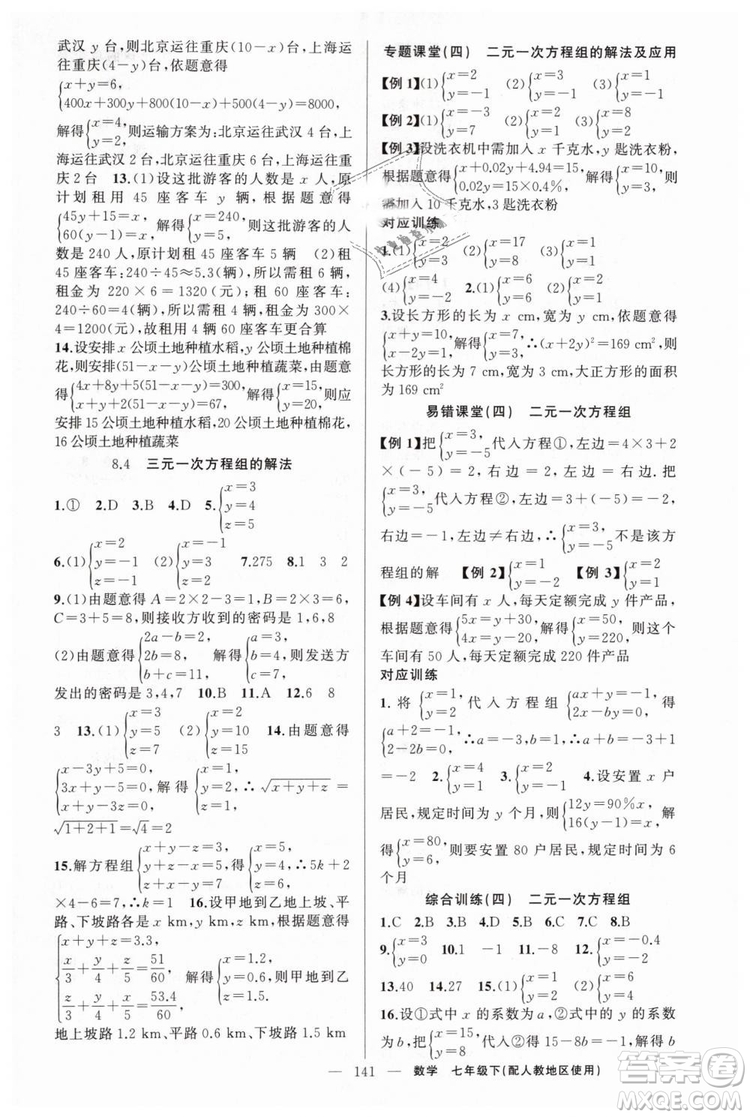 武汉 y 台,则北京运往重庆(6-x)台,上海运
往重庆(4-y)台,依题意得
{x+y=6,
400x+300y+800(6-x)+500(4-y)=8000,
解得{x=4, y=2,则运输方案为:北京运往武汉 4 台,上
海运往武汉 2 台,北京运往重庆 6 台,上海运往重
庆 2 台 13.(1)设这批游客的人数是 x 人,原
计划租用 45 座客车 y 辆,根据题意得
{45y+15=x, 60(y-1)=x,解得{x=240, y=5,答:这批游客的人
数是 240 人,原计划租 45 座客车 5 辆 (2)租 45
座客车:240÷45≈5.3(辆),所以需租 6 辆,
租金为 220×6=1320(元);租 60 座客车:
240÷60=4(辆),所以需租 4 辆,租金为 300×
4=1200(元),故租用 4 辆 60 座客车更合算
14.设安排 x 公顷土地种植水稻, y 公顷土地种植棉
花,则安排(51-x-y)公顷土地种植蔬菜,由题意
得{4x+8y+5(51-x-y)=300, x+y+2(51-x-y)=67,解得{x=15, y=20,则应
安排 15 公顷土地种植水稻,20 公顷土地种植棉花,
16 公顷土地种植蔬菜
8.4 三元一次方程组的解法
1.① 2.D 3.B 4.D 5.{x=3 y=4 z=5
6.(1){x=2 y=-1 z=-1 (2){x=2 y=3 z=1 7.275 8.1 3 2
9.(1)由题意得 A=2×2-3=1,B=2×4=8,
C=3+5=8,则接收方收到的密码是 1,6,8
(2)由题意得{2a-b=2, 2b=8, b+c=11,解得{a=3, b=4, c=7,则发送方
发出的密码是 3,4,7 10.B 11.A 12.-2
3 13.(1){x=3 y=5 z=7 (2){x=2 y=0 z=2 14.由题意得
{x-3y+5=0, 3x+z-5=0, x+y-3=0,解得{x=1, y=2, z=2,∴√x+y+z=
√1+2+1=√4=2
15.解方程组{x+y-z=3, y+z-x=5, z+x-y=7,得{x=5, y=4, z=6,∴k=(5+2
×4-6=7) 16.设从甲地到乙地,上坡路、平
路、下坡路分别是 x km,y km,z km,根据题意得
{x+y+z=3.3, x/3+y/4+z/5=51/60, z/3+y/4+x/5=53.4/60,解得{x=1.2, y=0.6, z=1.5,则甲地到乙
地上坡路 1.2 km,平路 0.6 km,下坡路 1.5 km
专题课堂(四) 二元一次方程组的解法及应用
【例 1】(1){x=2 y=1 (2){x=3 y=4 (3){x=5 y=1
【例 2】(1){x=-3 y=7 (2){x=1 y=0
【例 3】设洗衣机中需加入 x 千克水,y 匙洗衣粉,
根据题意得{x+0.02y+4.94=15, 0.02y=15×0.4%,解得{x=10, y=3,则需
加入 10 千克水,3 匙洗衣粉
对应训练
1.(1){x=2 y=0 (2){x=17 y=8 (3){x=6 y=1
(4){x=4 y=-2 2.{x=6 y=-1
3.设长方形的长为 x cm,宽为 y cm,根据题意
得{x+y=10, 3x=7y,解得{x=7, y=3,∴(x+2y)²=169 cm²,则
长方形的长为 7 cm,宽为 3 cm,大正方形的面积为
169 cm²
易错课堂(四) 二元一次方程组
【例 1】把{x=3, y=-5代入方程①,左边=4×3+2
×(-5)=2,右边=2,左边=右边.把
{x=3, y=-5代入方程②,左边=3+(-5)=-2,
右边=-1,左边≠右边,∴{x=3, y=-5不是该方
程组的解 【例 2】{x=-1 y=2 【例 3】{x=2 y=1
【例 4】设车间有 x 人,每天定额完成 y 件产品,
根据题意得{5x=y+30, 4x=y-20,解得{x=50, y=220,则这个
车间有 50 人,每天定额完成 220 件产品
对应训练
1.将{x=1, y=2代入方程组{ax+y=-1, 2x-by=0,得
{a+2=-1, 2-2b=0,∴a=-3,b=1,∴a+b=-3+1
=-2 2.{x=4 y=1 3.{x=0 y=-1 4.设安置 x 户
居民,规划土地面积为 y m²,则{12y=90%x, 16(y-1)=x,解得
{x=80, y=6,则最多安置 80 户居民,规划土地面积为 6
m²
综合训练(四) 二元一次方程组
1.C 2.B 3.D 4.A 5.C 6.D 7.C 8.B
9.{x=3 y=0 10.1 -1 11.-8 12.{x=-0.4 y=-0.2
13.40 14.27 15.(1){x=5 y=2 (2){x=2 y=3
16.设①式中 x 的系数为 a,②式中 y 的系数为
b,把{x=8, y=-10代入②得 15×8-10b=-20,
141
数学 七年级下(配人教地区使用)